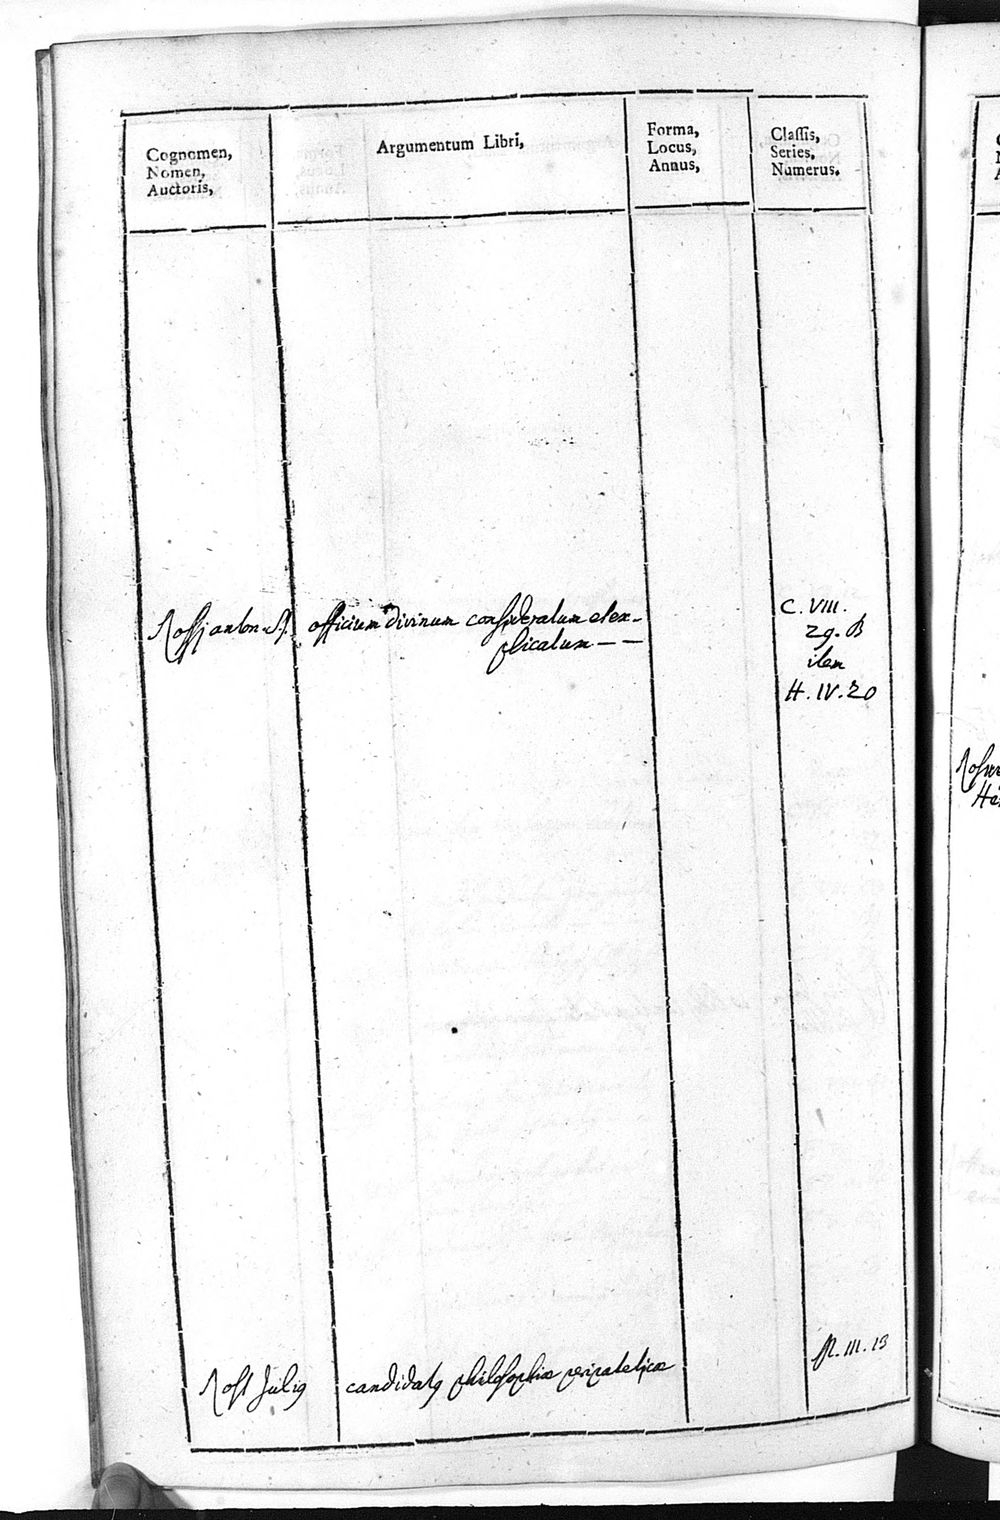 Cognomen,
Nomen,
Auctoris,
Argumentum Libri,
Forma,
Locus,
Annus,
Classis,
Series,
Numerus.
Rossj anton. S.J. officium divinum consideratum et ex-
plicatum — —
C. VIII.
29. B
item
H. IV. 20
Rost Julius candidatus philosophiæ peripateticæ
R. III. 13